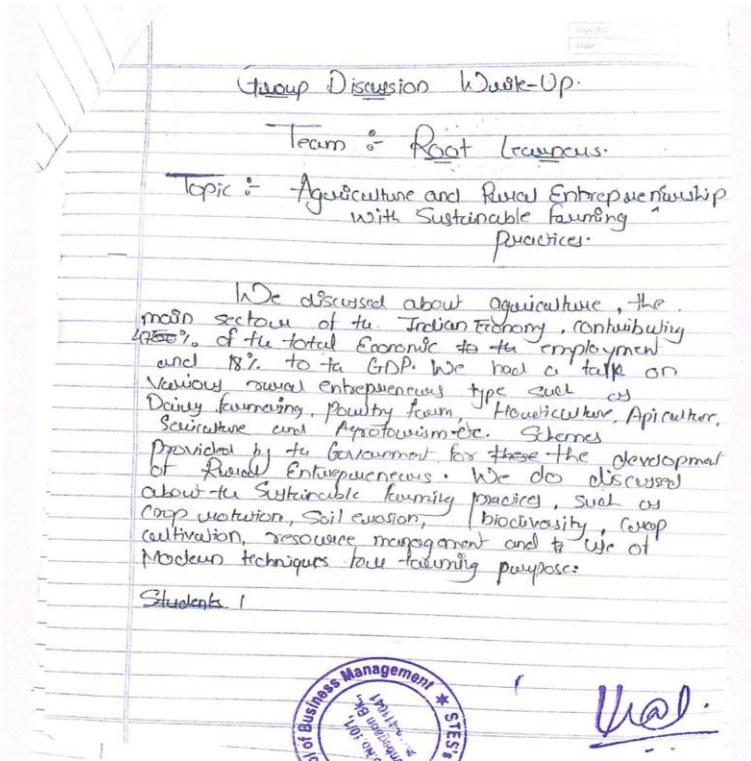 Group Discussion Write-Up.
Team :- Root Learners.
Topic :- Agriculture and Rural Entrepreneurship
with Sustainable farming
practices.
We discussed about agriculture, the
main sectors of the Indian Economy, contributing
% of the total Economic to the employment
and 18% to the GDP. We had a talk on
various rural entrepreneurs type such as
Dairy farming, Poultry farm, Horticulture, Apiculture,
Sericulture and Agrotourism etc. Schemes
Provided by the Government for these the development
of Rural Entrepreneurs. We do discussed
about the Sustainable farming practices, such as
crop rotation, Soil erosion, biodiversity, crop
cultivation, resource management and to use of
Modern techniques for farming purpose.
Students 1
of Business Management ★ STES's
No. 10/1,
Bk.,